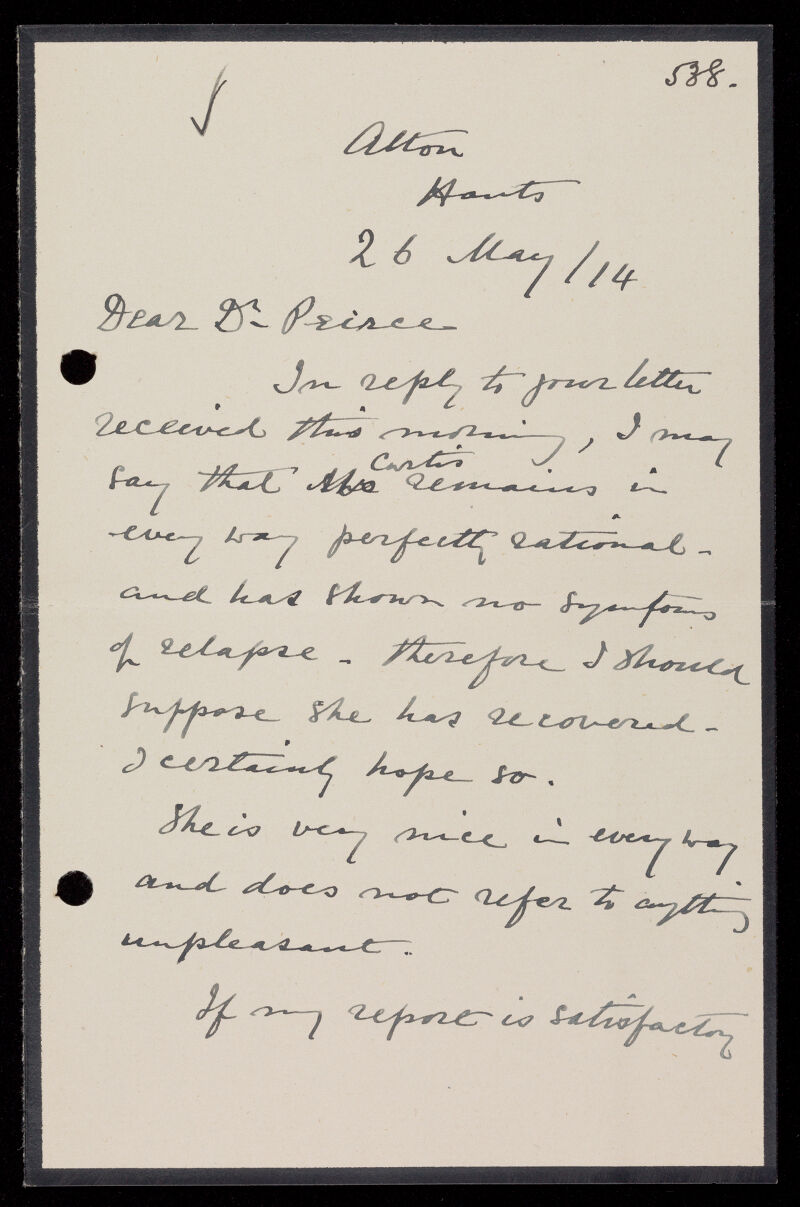 538.
Alton
Hants
26 May/14
Dear Dr Peirce
In reply to your letter
received this morning, I may
say that Curtis remains in
every way perfectly rational -
and has shown no symptoms
of relapse - therefore I should
suppose she has recovered -
I certainly hope so.
She is very nice in every way
and does not refer to anything
unpleasant.
If my report is satisfactory